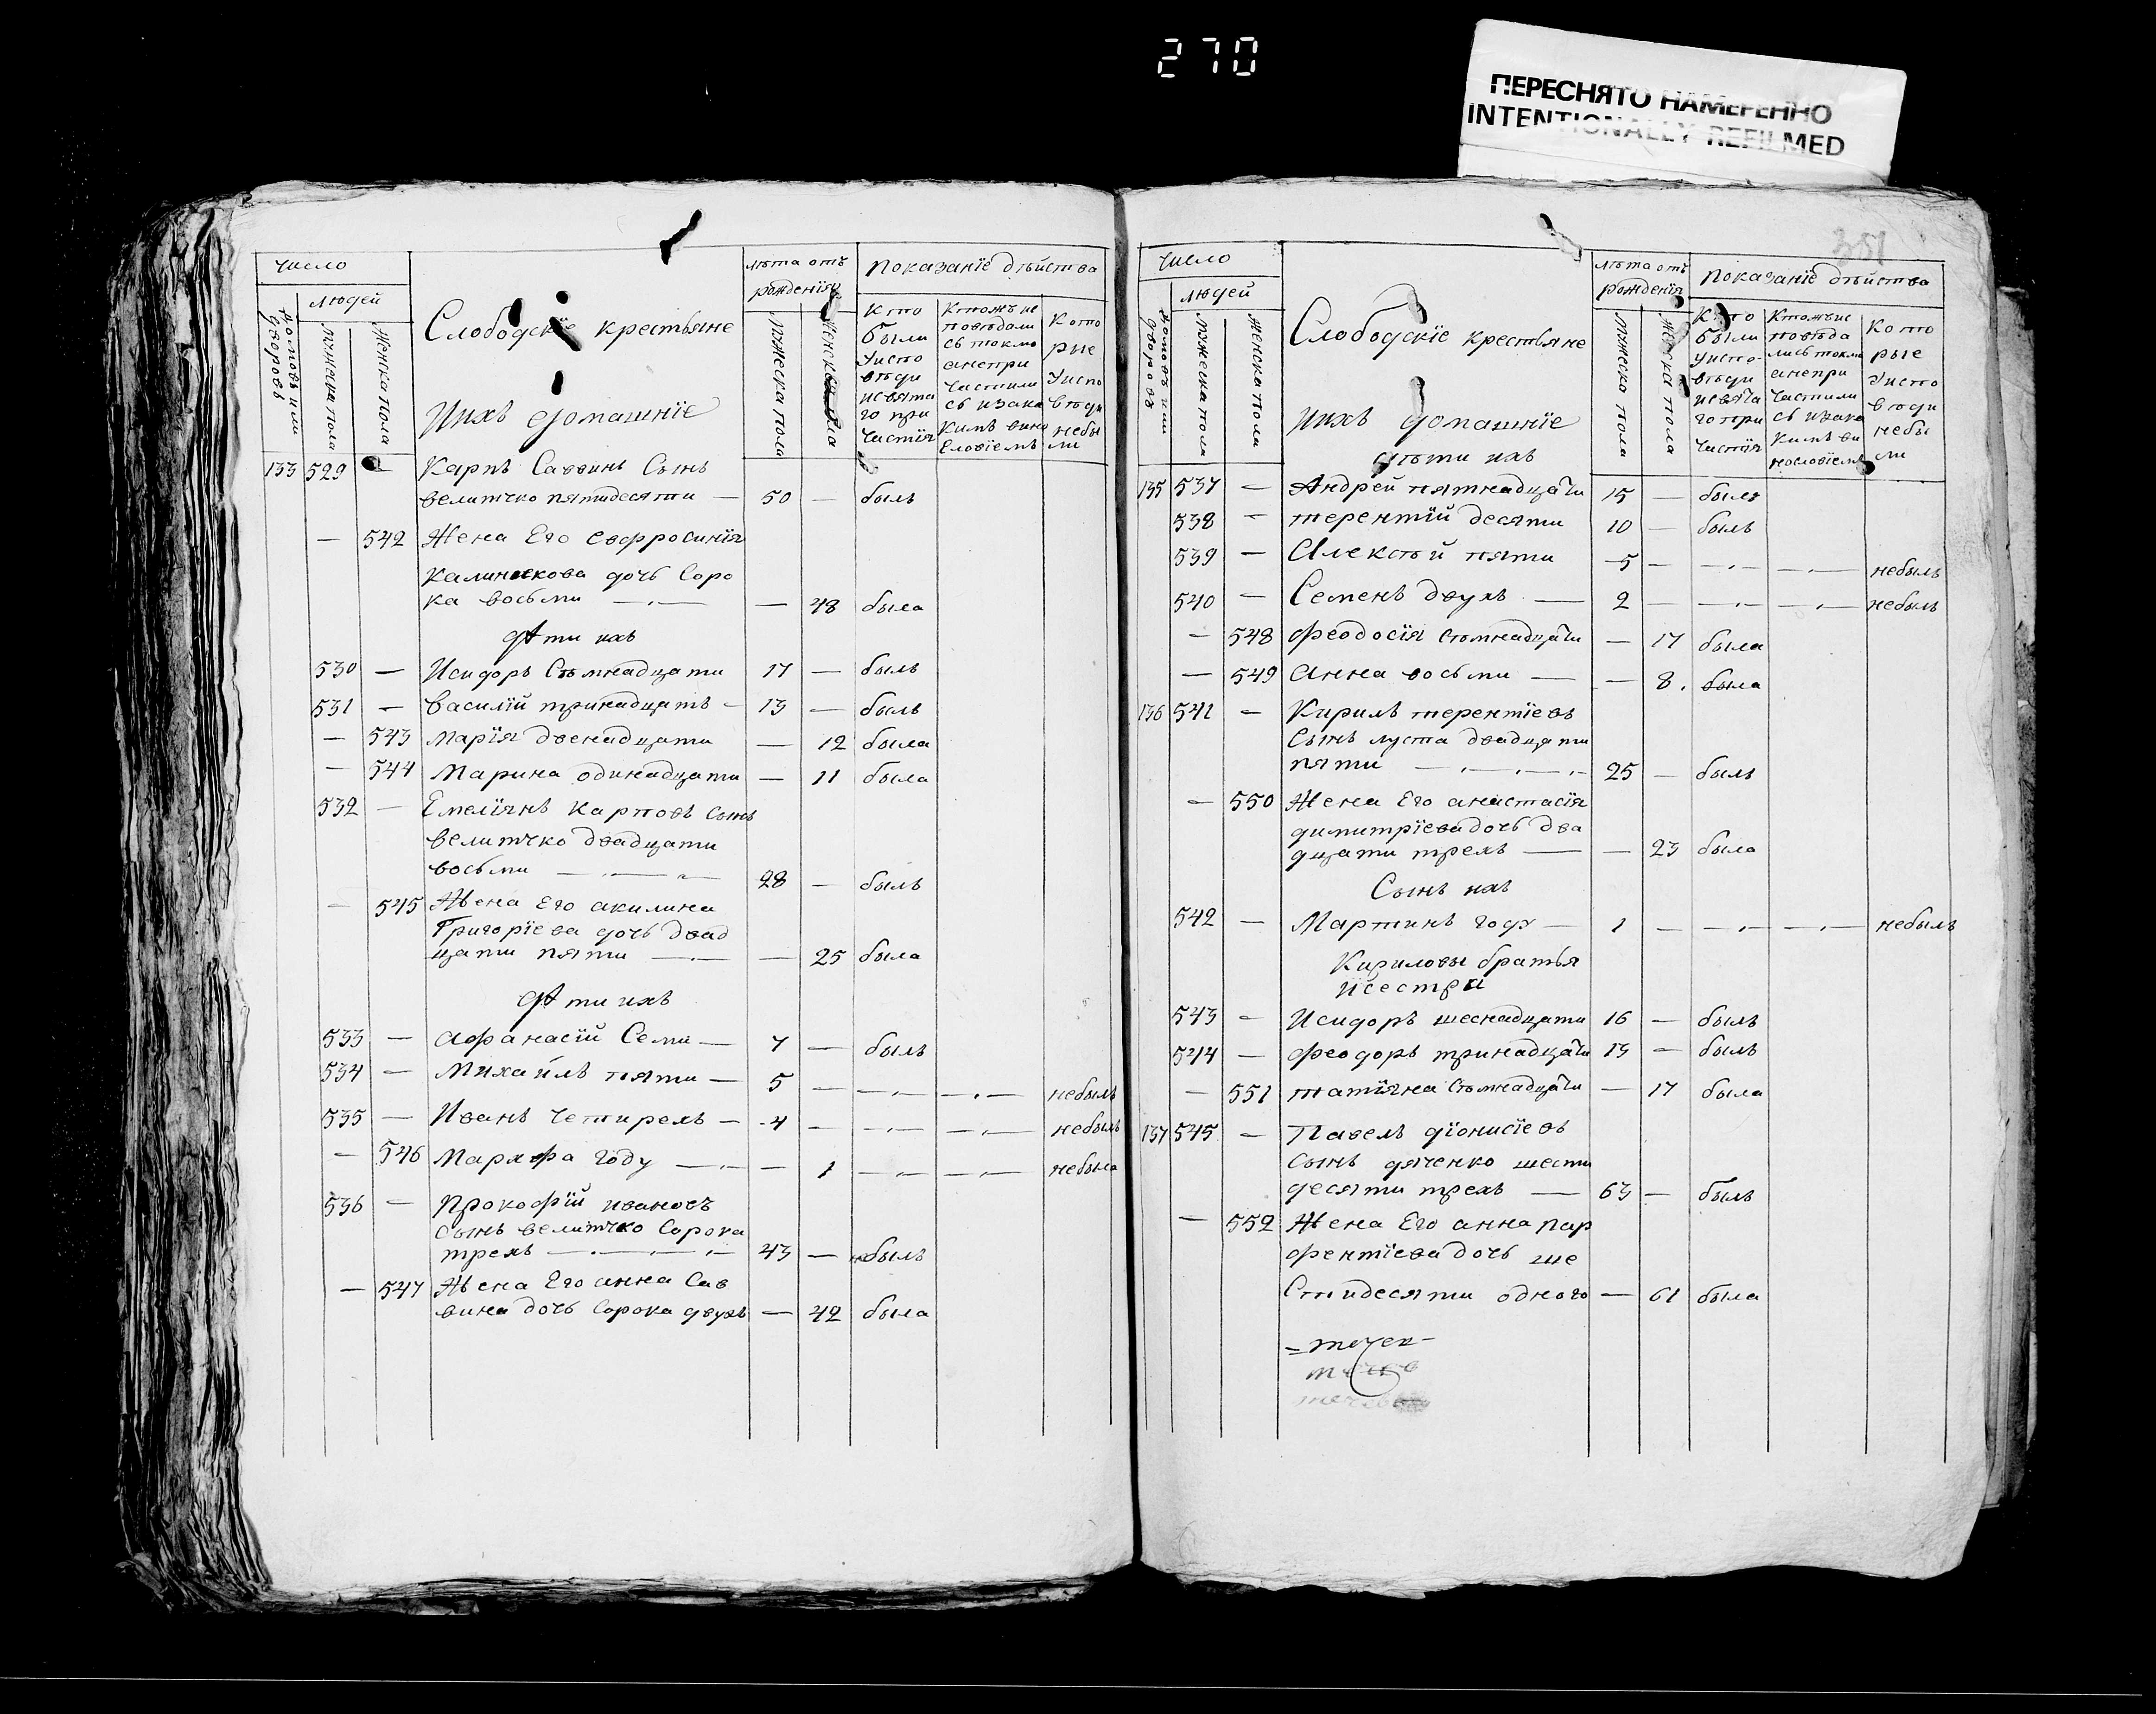 270
ПЕРЕСНЯТО НАМЕРЕННО
INTENTIONALLY REFILMED
число
людей
домовъ или дворовъ
мужеска пола
женска пола
Слободскїе крестьяне
Ихъ домашнїе
лѣта отъ
рожденїя
мужеска пола
женска пола
Показанїе дѣйства
Кто
были
Уиспо
вѣди
исвята
го при
Частїя
Ктожъ не
повѣдали
сь токмо
анепри
Частили
сь изака
кимъ вино
Словіемъ
Кото
рые
Уиспо
вѣди
небы
ли
133 529 — Карпъ Саввинъ Сынъ
величко пятидесяти — 50 — былъ
— 542 Жена Его Евфросинїя
Калиникова дочь Соро
ка восьми — — 48 была
дѣти ихъ
530 — Исидоръ Съмнадцати 17 — былъ
531 — Василїй тринадцать — 13 — былъ
— 543 Марїя двенадцати — 12 была
— 544 Марина одинадцати — 11 была
532 — Емелїянъ Карповъ Сынъ
величко двадцати
восьми — 28 — былъ
— 545 Жена Его акилина
Григорїева дочь двад
цати пяти — — 25 была
дѣти ихъ
533 — Афанасїй Семи — 7 — былъ
534 — Михайлъ пяти — 5 — — — небылъ
535 — Иванъ Четирехъ — 4 — — — небылъ
— 546 Марѳа году — — 1 — — небыла
536 — Прокофїй ивановъ
Сынъ величко Сорока
трехъ — 43 — былъ
— 547 Жена Его анна Сав
вина дочь Сорока двухъ — 42 была
351
число
людей
домовъ или дворовъ
мужеска пола
женска пола
Слободскїе крестьяне
ихъ домашнїе
лѣта отъ
рожденїя
мужеска пола
женска пола
Показанїе дѣйства
Кто
были
Уиспо-
вѣди
исвята
го при
Частїя
Ктожъ не
повѣда
лись токмо
анепри
Частили
сь изака
кимъ ви
нословїемъ
Кото
рые
Уиспо
вѣди
небы
ли
дѣти ихъ
135 537 — Андрей пятнадцати 15 — былъ
538 — терентїй десяти 10 — былъ
539 — Алексѣй пяти 5 — — — небылъ
540 — Семенъ двухъ — 2 — — — небылъ
— 548 феодосїя съмнадцати — 17 была
— 549 Анна восьми — — 8. была
136 541 — Кирилъ терентїевъ
Сынъ луста двадцяти
пяти — 25 — былъ
— 550 Жена Его анастасїя
димитрїева дочь два
дцати трехъ — — 23 была
Сынъ ихъ
542 — Мартинъ году — 1 — — — небылъ
Кириловы братья
Исестра
543 — Исидоръ шеснадцати 16 — былъ
544 — феодоръ тринадцати 13 — былъ
— 551 татїяна Съмнадцати — 17 была
137 545 — Павелъ дїонисїевъ
сынъ дяченко шести
десяти трехъ — 63 — былъ
— 552 Жена Его анна пар
фентїева дочь ше
Стидесяти одного — 61 была